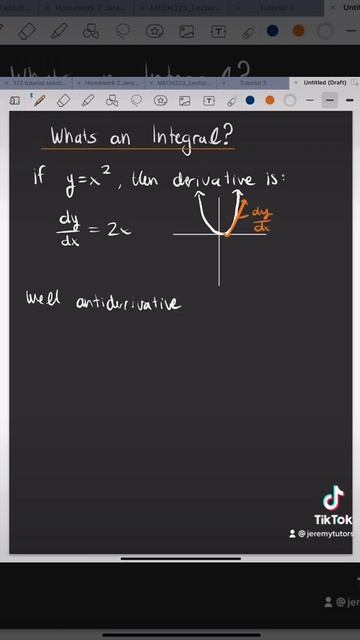 172 tutorial soluti...
Homework 2 Jere...
MECH323_Lectur...
Tutorial 3
Untitled (Draft)
Whats an Integral?
if y=x², then derivative is:
dy/dx = 2x
dy/dx
Well antiderivative
TikTok
@jeremytutors